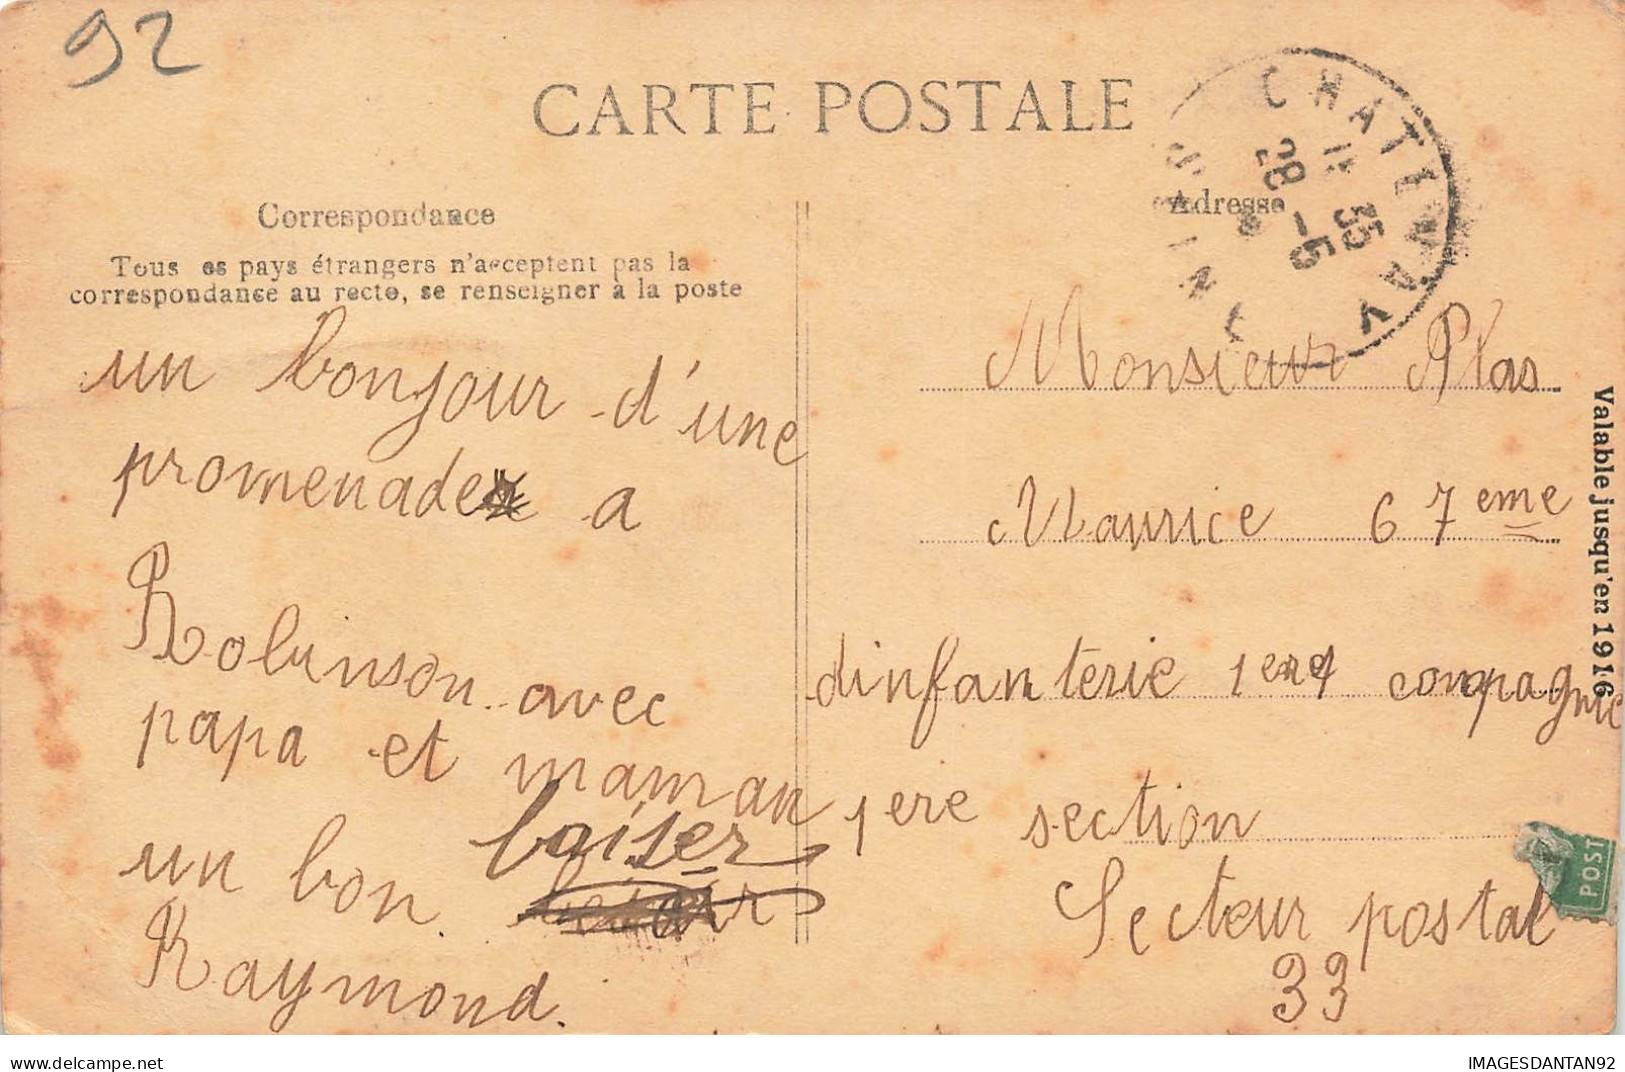 92
CARTE POSTALE
Correspondance
Tous es pays étrangers n'acceptent pas la
correspondance au recto, se renseigner à la poste
un bonjour d'une
promenade a
Robinson avec
papa et maman
un bon baiser
Raymond.
CHATENAY
11 35
28 -5
SEINE
Adresse
Monsieur Plas
Maurice 67eme
dinfanterie 1ere compagnie
1ere section
Secteur postal
33
Valable jusqu'en 1916
POST
delcampe.net
IMAGESDANTAN92